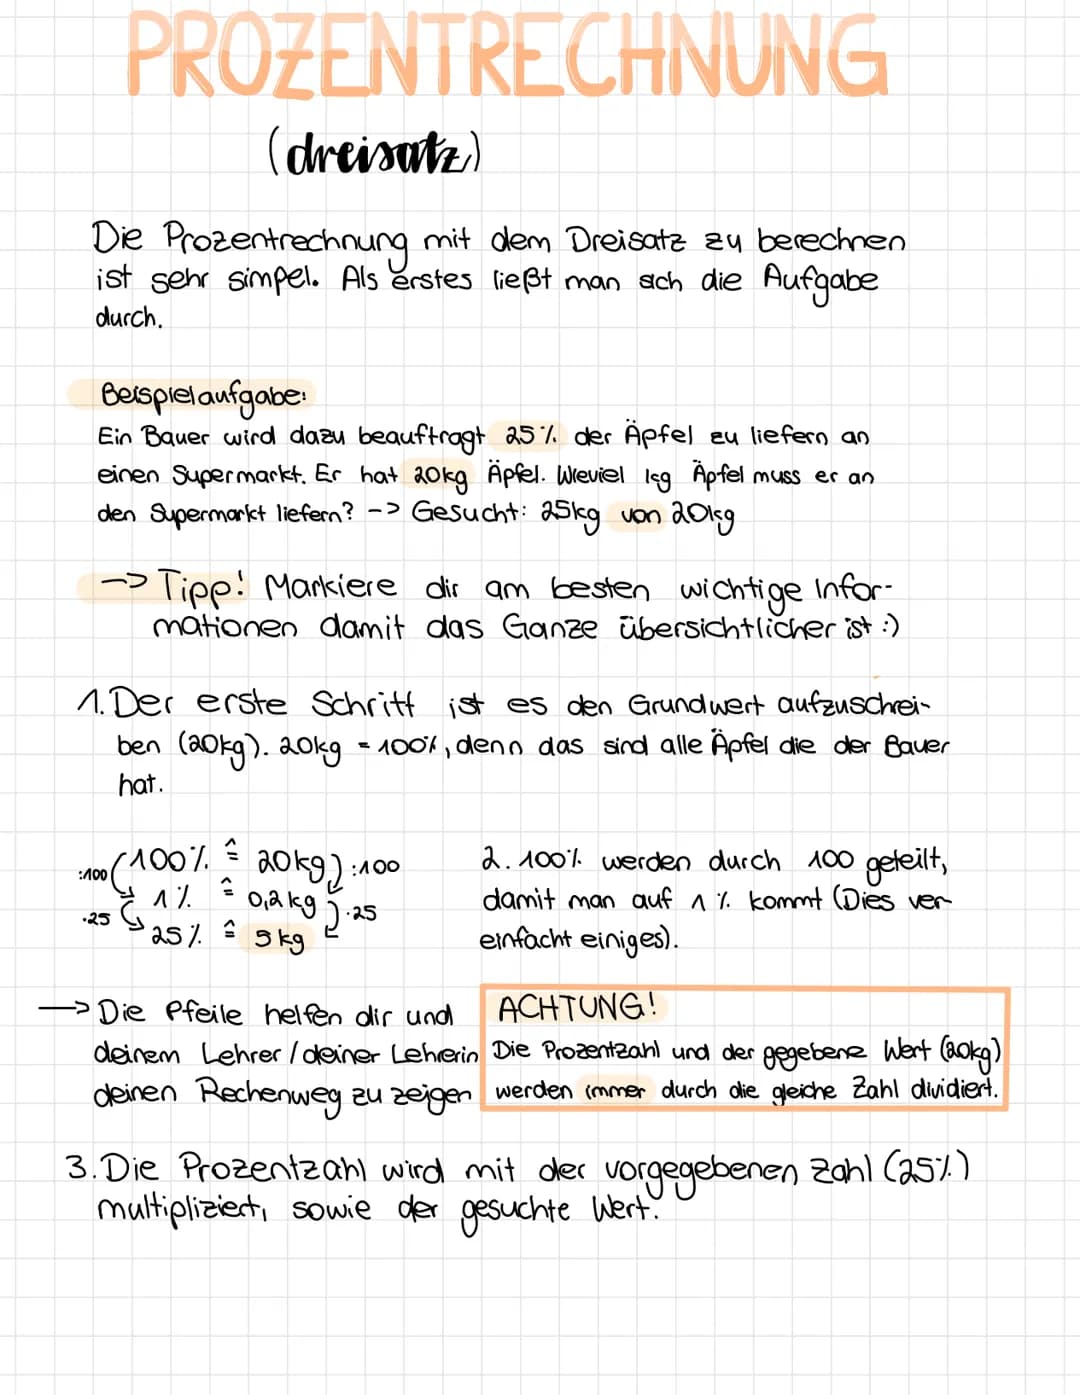 PROZENTRECHNUNG
(dreisatz)
Die Prozentrechnung mit dem Dreisatz zu berechnen
ist sehr simpel. Als erstes ließt man sich die Aufgabe
durch.
Beispielaufgabe:
Ein Bauer wird dazu beauftragt 25% der Äpfel zu liefern an
einen Supermarkt. Er hat 20kg Äpfel. Wieviel kg Äpfel muss er an
den Supermarkt liefern? -> Gesucht: 25kg von 20kg
-> Tipp! Markiere dir am besten wichtige Infor-
mationen damit das Ganze übersichtlicher ist :)
1. Der erste Schritt ist es den Grundwert aufzuschrei-
ben (20kg). 20kg = 100%, denn das sind alle Äpfel die der Bauer
hat.
:100 100% ≙ 20kg :100
1% ≙ 0,2kg
·25 25% ≙ 5kg ·25
2. 100% werden durch 100 geteilt,
damit man auf 1% kommt (Dies ver-
einfacht einiges).
-> Die Pfeile helfen dir und
deinem Lehrer/deiner Leherin
deinen Rechenweg zu zeigen
ACHTUNG!
Die Prozentzahl und der gegebene Wert (20kg)
werden immer durch die gleiche Zahl dividiert.
3. Die Prozentzahl wird mit der vorgegebenen Zahl (25%)
multipliziert, sowie der gesuchte Wert.